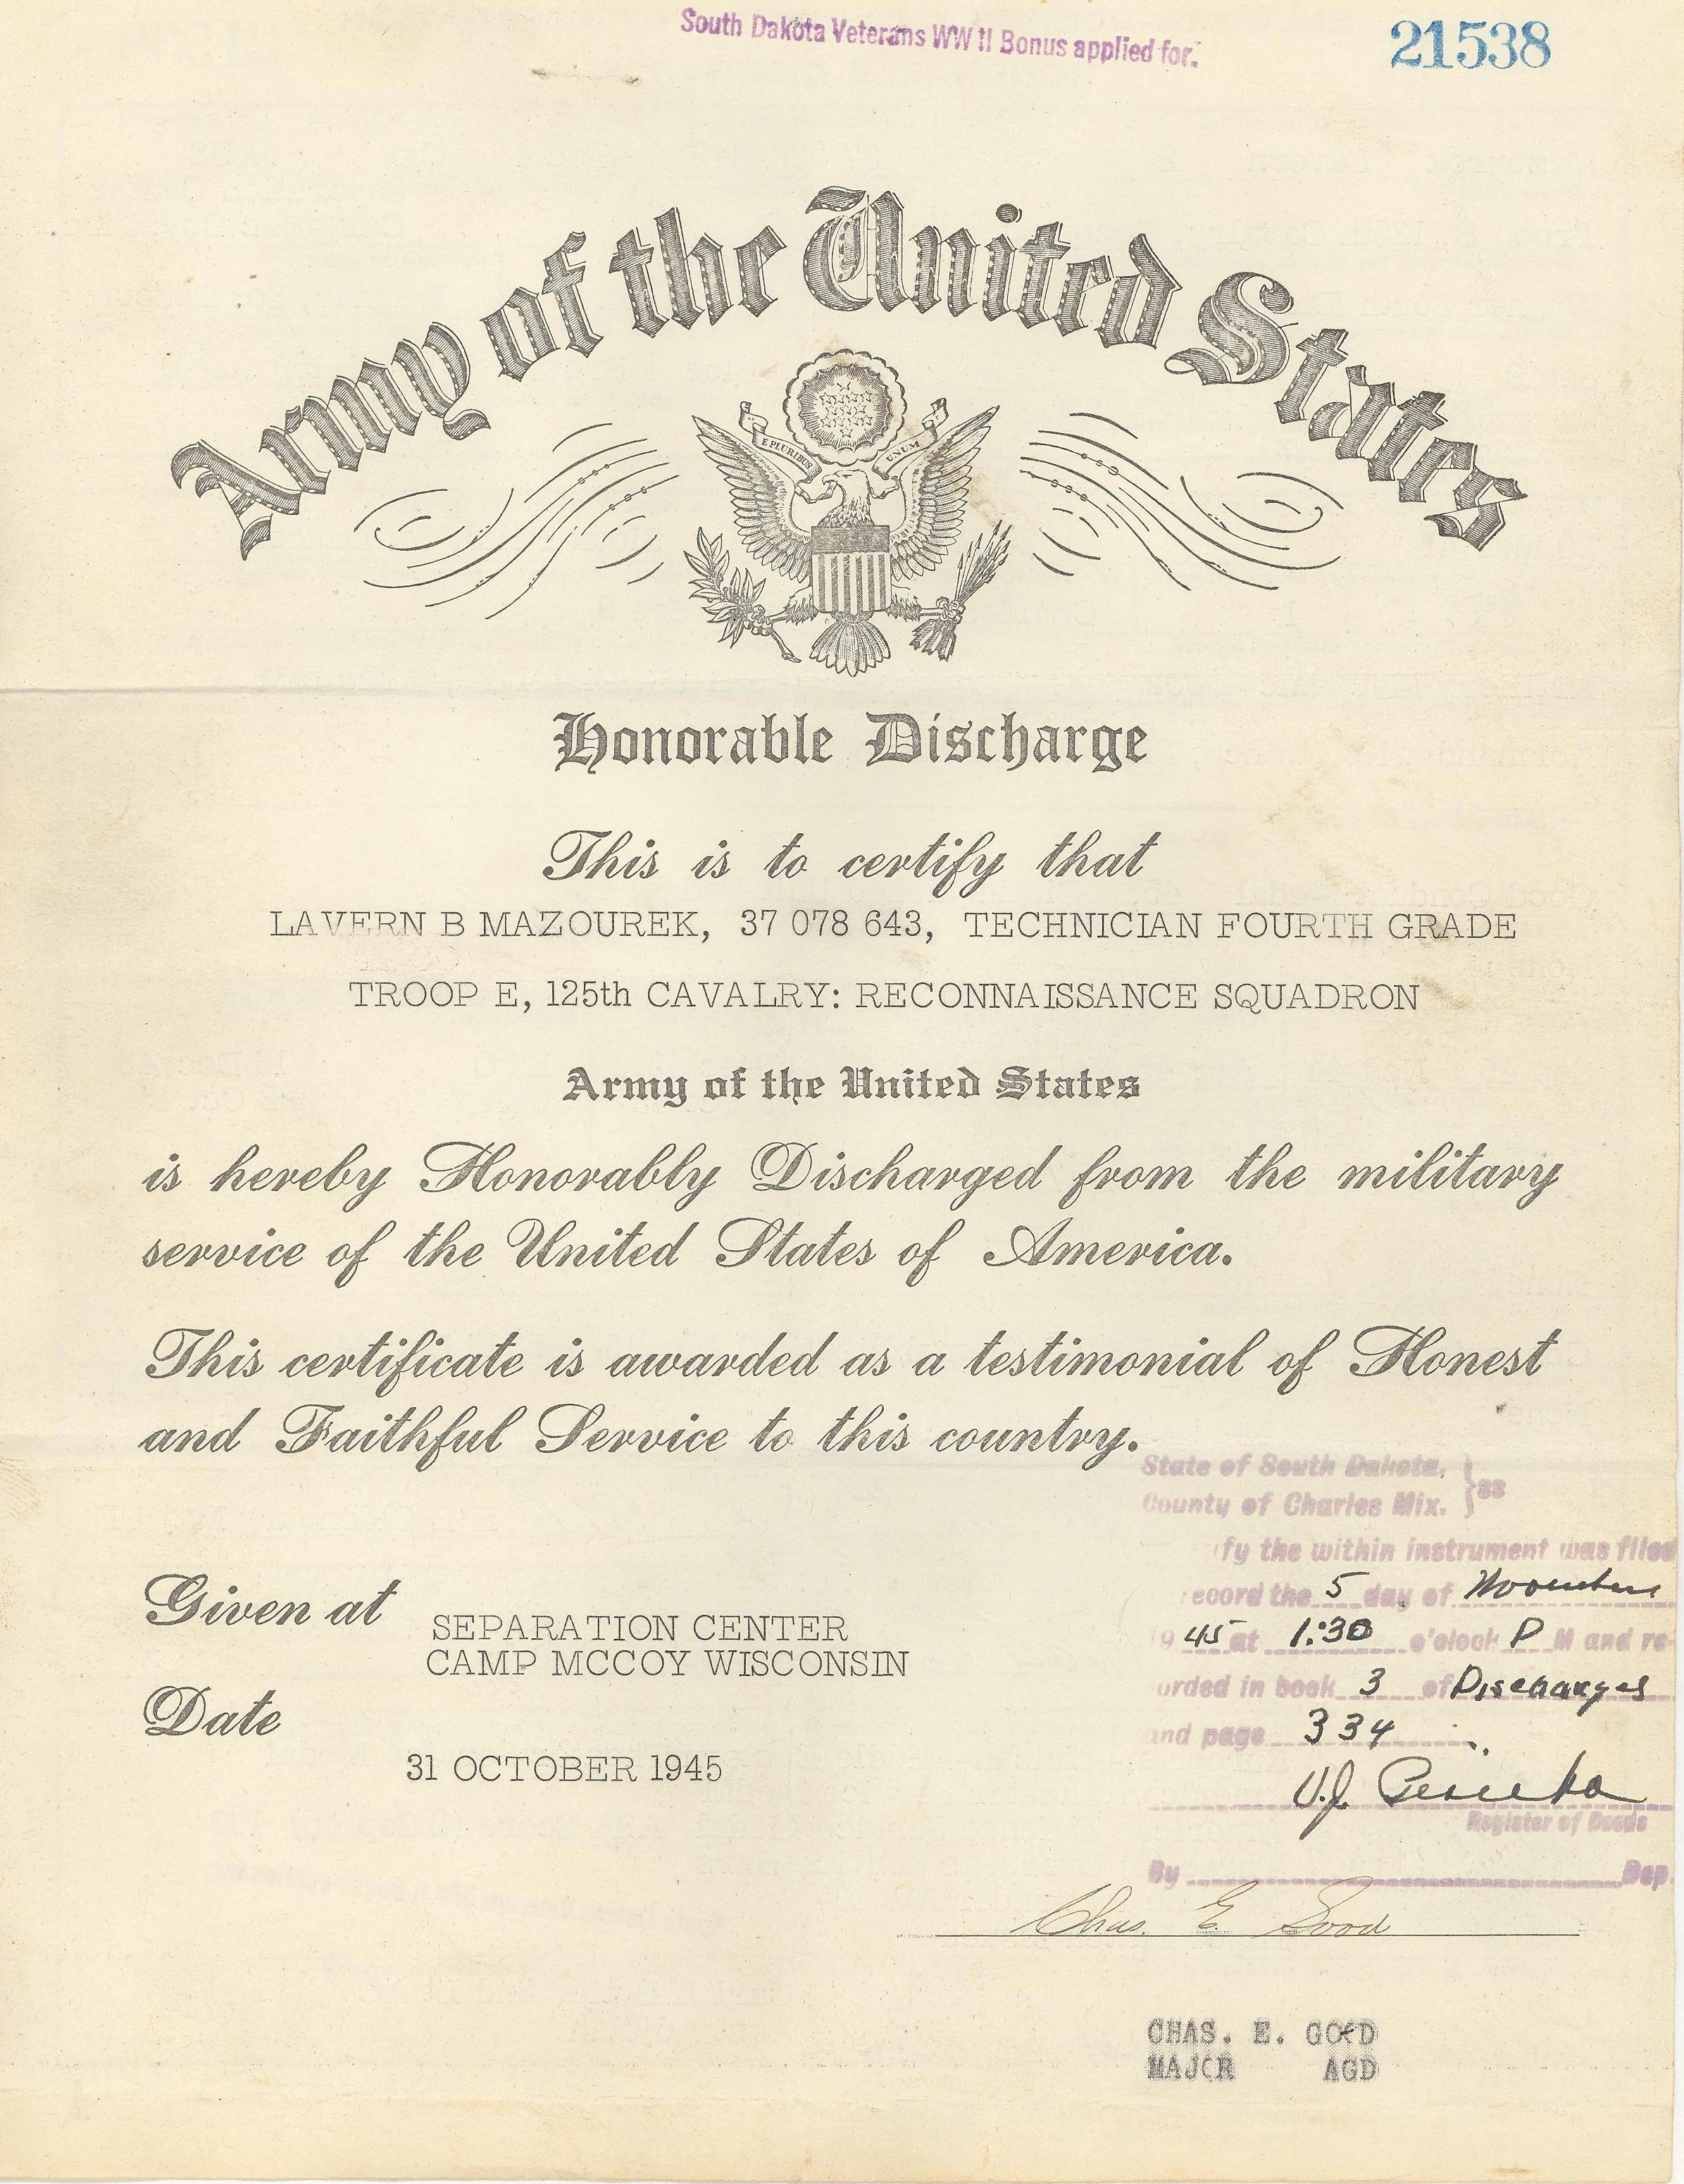 South Dakota Veterans WW II Bonus applied for.
21538
Army of the United States
E PLURIBUS UNUM
Honorable Discharge
This is to certify that
LAVERN B MAZOUREK, 37 078 643, TECHNICIAN FOURTH GRADE
TROOP E, 125th CAVALRY: RECONNAISSANCE SQUADRON
Army of the United States
is hereby Honorably Discharged from the military
service of the United States of America.
This certificate is awarded as a testimonial of Honest
and Faithful Service to this country.
State of South Dakota,
County of Charles Mix. } ss
ify the within instrument was filed
ecord the 5 day of November
19 45 at 1:30 o'clock P M and re-
orded in book 3 of Discharges
and page 334
V.J.
Register of Deeds
By Dep.
Given at SEPARATION CENTER
CAMP MCCOY WISCONSIN
Date
31 OCTOBER 1945
Chas. E. Good
CHAS. E. GOOD
MAJOR AGD